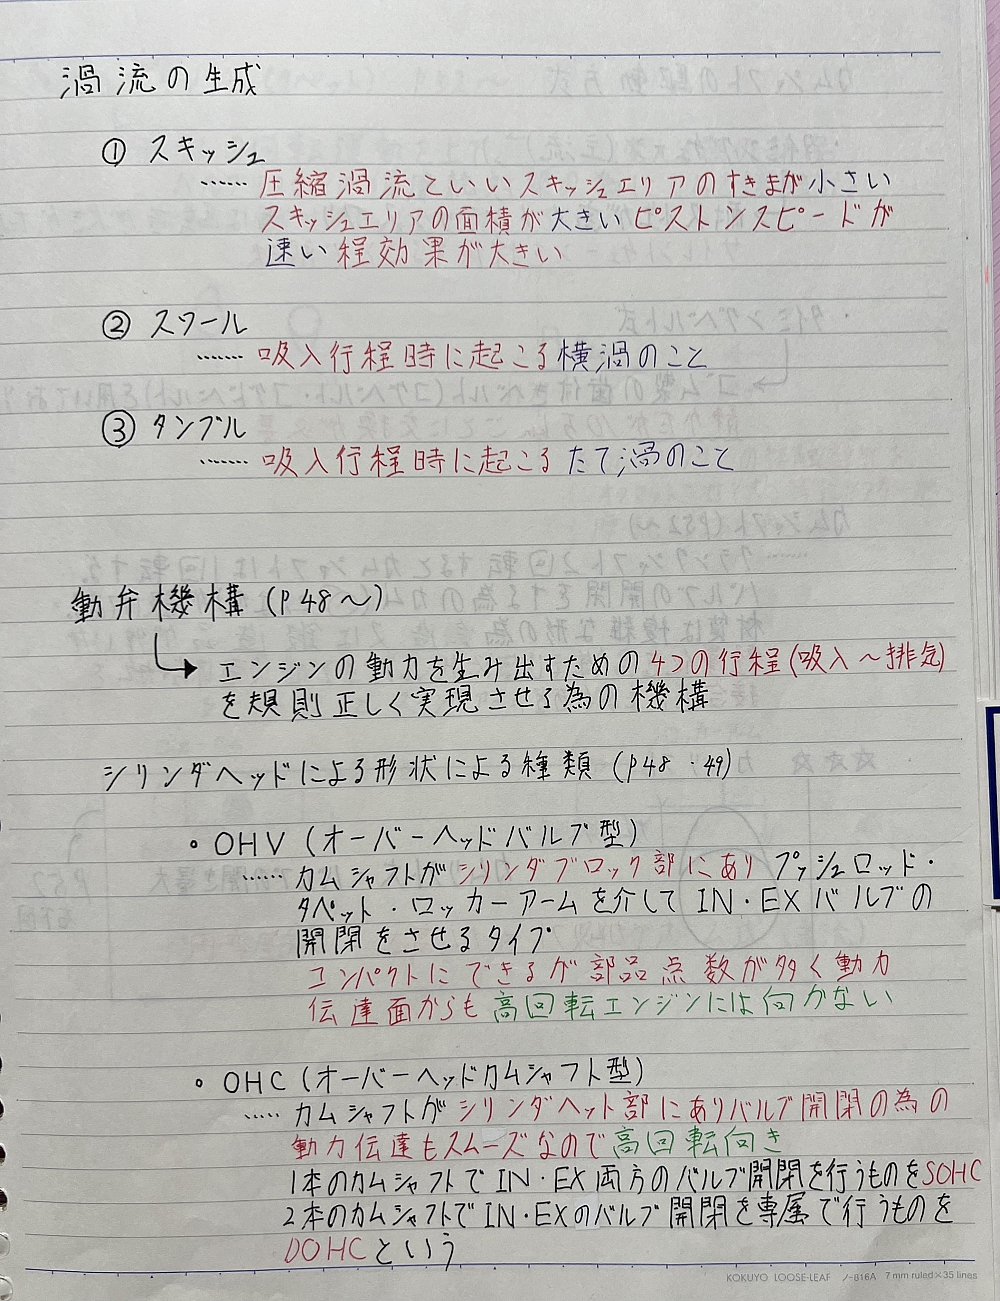 渦流の生成
① スキッシュ
……圧縮渦流といいスキッシュエリアのすきまが小さい
スキッシュエリアの面積が大きいピストンスピードが
速い程効果が大きい
② スワール
……吸入行程時に起こる横渦のこと
③ タンブル
……吸入行程時に起こるたて渦のこと
動弁機構(P48〜)
→エンジンの動力を生み出すための4つの行程(吸入〜排気)
を規則正しく実現させる為の機構
シリンダヘッドによる形状による種類(P48・49)
・OHV(オーバーヘッドバルブ型)
……カムシャフトがシリンダブロック部にありプッシュロッド・
タペット・ロッカーアームを介してIN・EXバルブの
開閉をさせるタイプ
コンパクトにできるが部品点数が多く動力
伝達面からも高回転エンジンには向かない
・OHC(オーバーヘッドカムシャフト型)
……カムシャフトがシリンダヘット部にありバルブ開閉の為の
動力伝達もスムーズなので高回転向き
1本のカムシャフトでIN・EX両方のバルブ開閉を行うものをSOHC
2本のカムシャフトでIN・EXのバルブ開閉を専属で行うものを
DOHCという
KOKUYO LOOSE-LEAF ノ-816A 7mm ruled×35 lines